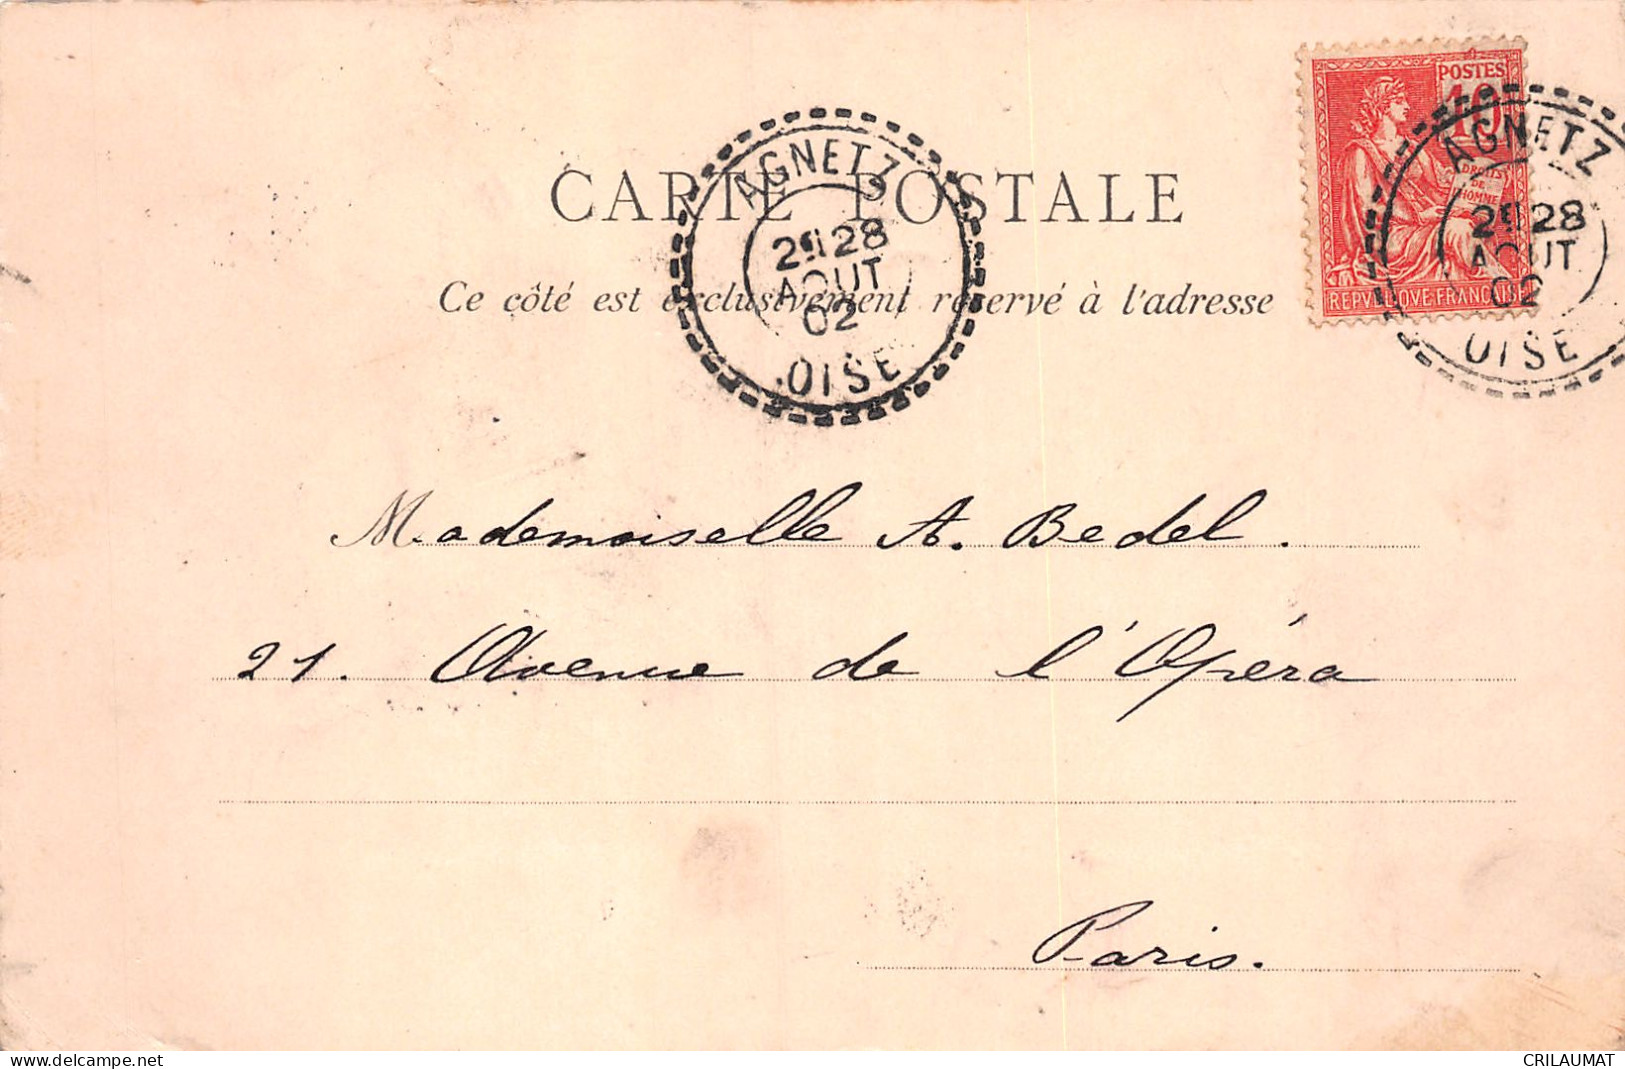 CARTE POSTALE
Ce côté est exclusivement réservé à l'adresse
AGNETZ
28
AOUT
02
OISE
POSTES
10
DROITS
DE
L'HOMME
REPVBLIQVE FRANÇAISE
AGNETZ
28
AOUT
02
OISE
Mademoiselle A. Bedel.
21. Avenue de l'Opéra
Paris.
www.delcampe.net
CRILAUMAT